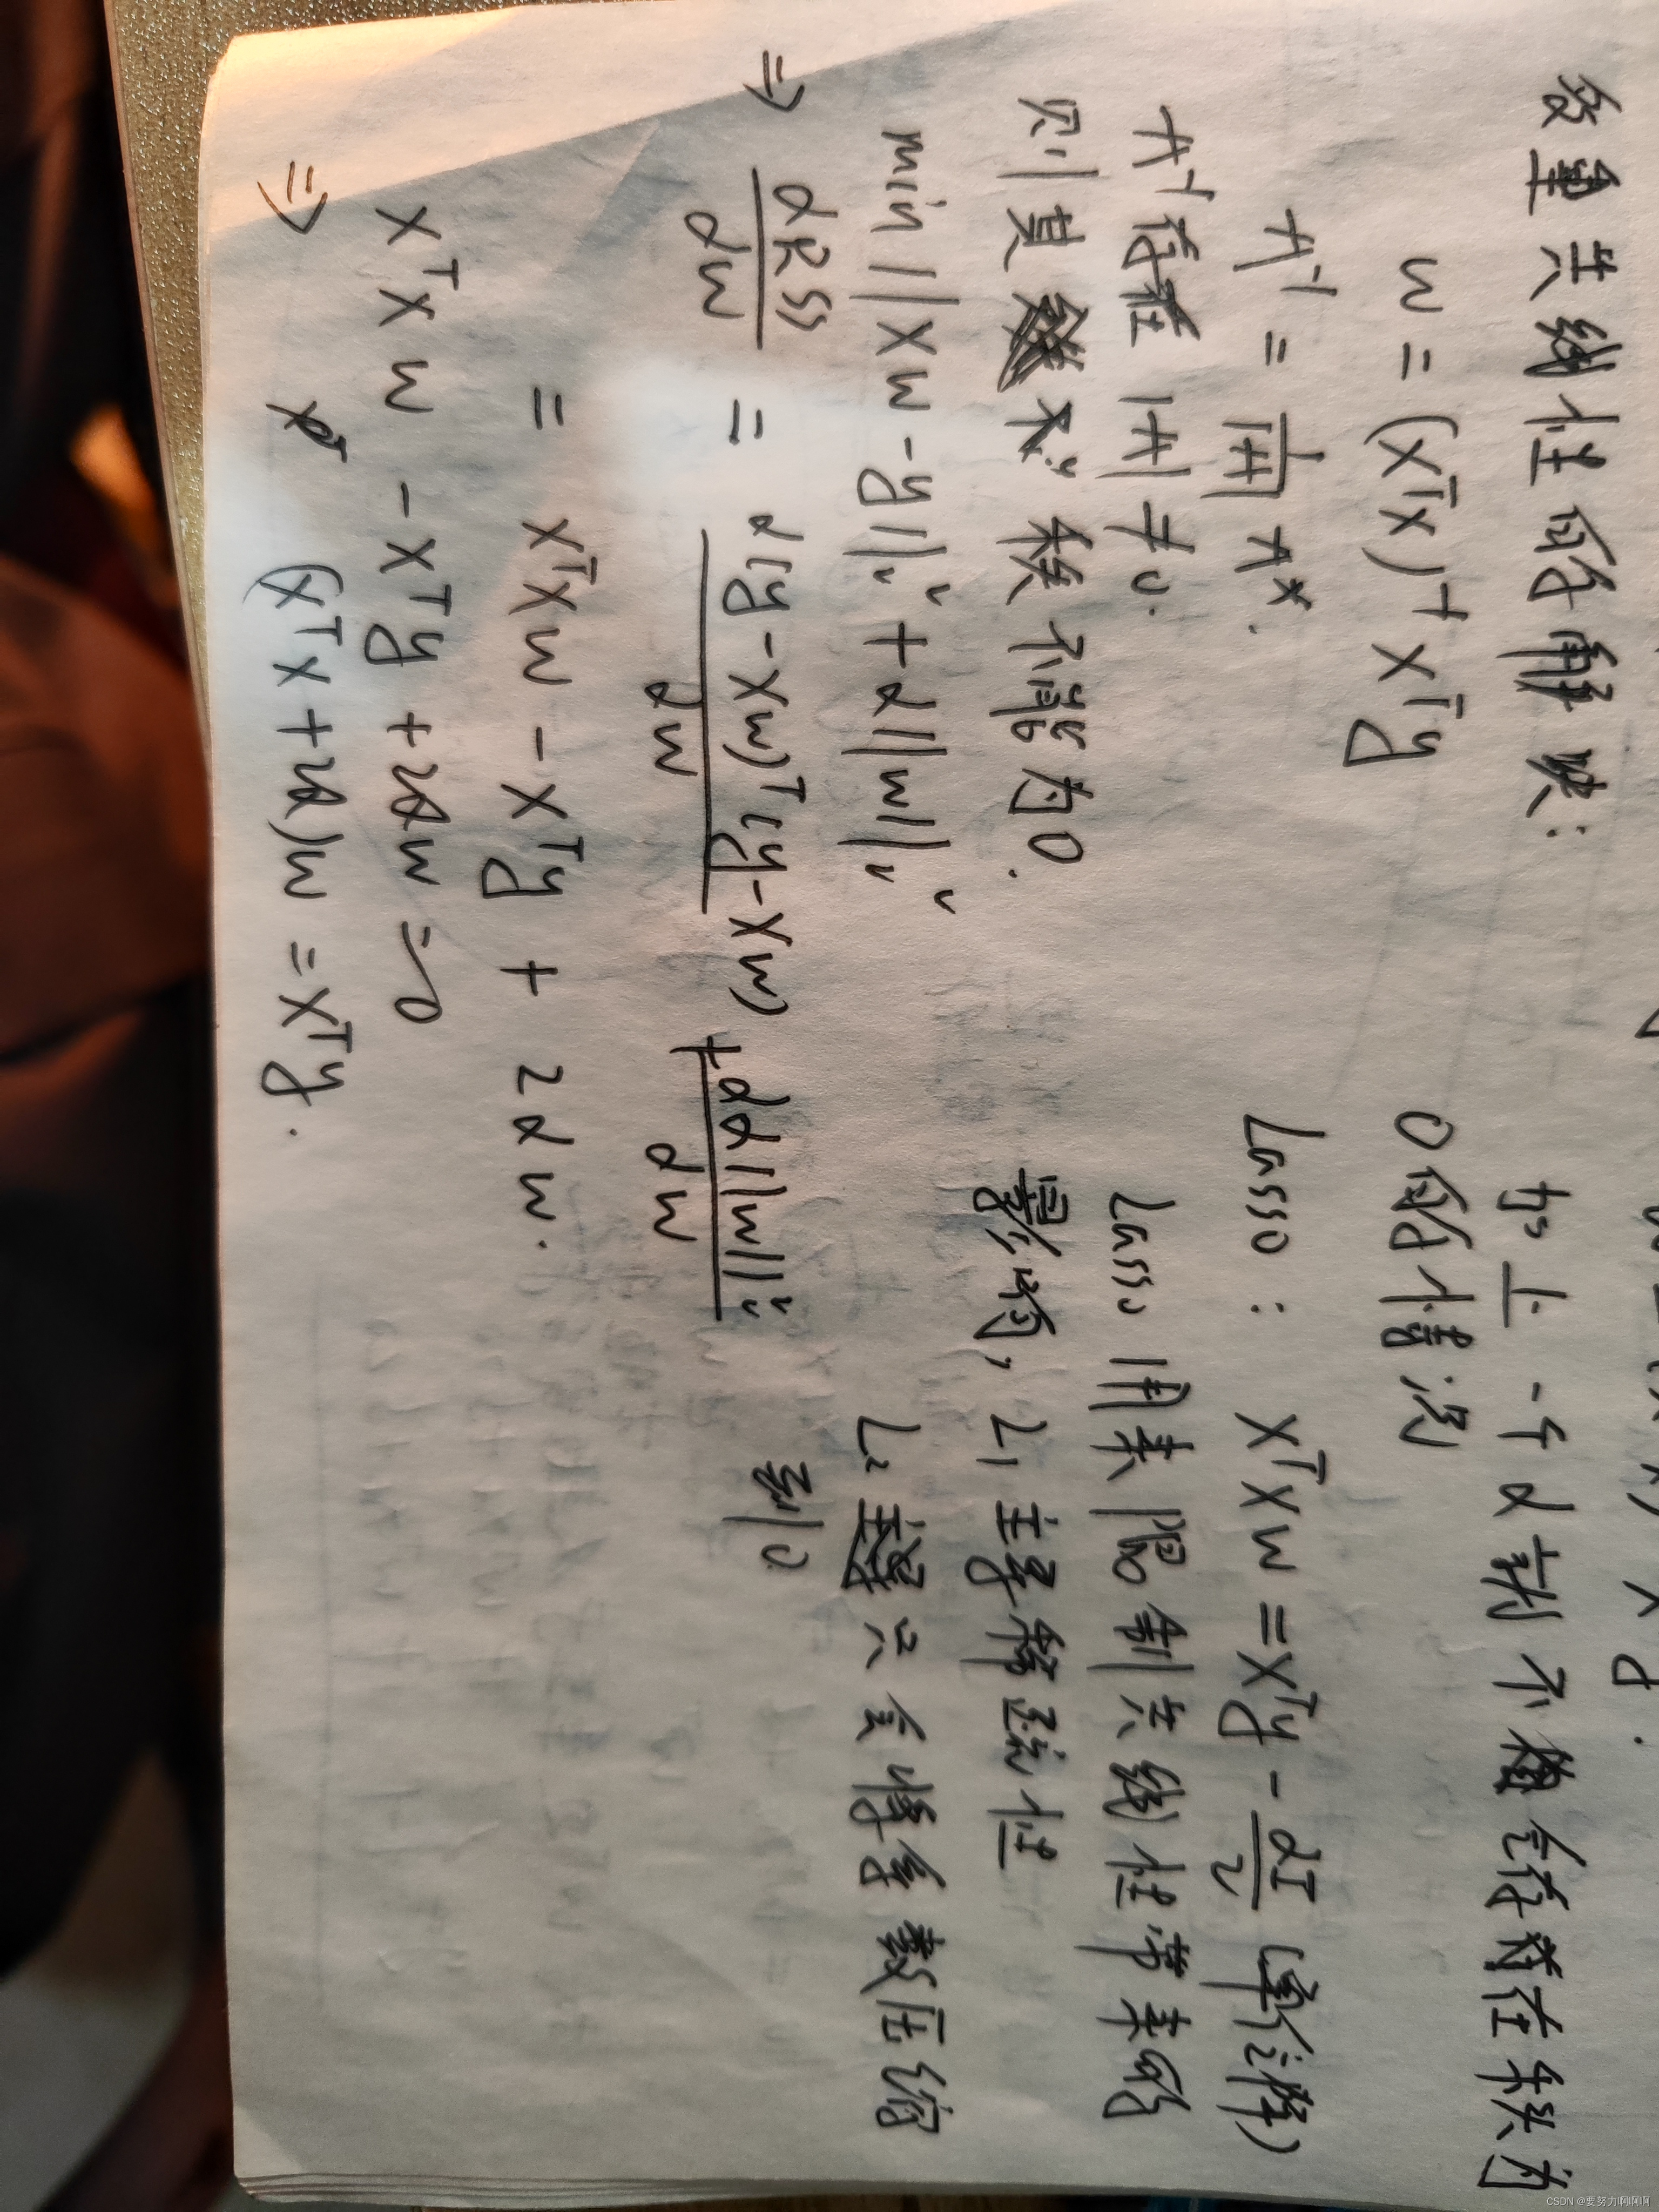 多重共线性的解决:
w = (XᵀX)⁻¹ Xᵀy
A⁻¹ = 1/|A| A*.
A⁻¹存在 |A| ≠ 0.
则其 秩不能为0.
min ||Xw - y||₂² + α||w||₂²
⇒ dRSS/dw = d(y - Xw)ᵀ(y - Xw)/dw + dα||w||₂²/dw
= XᵀXw - Xᵀy + 2αw.
XᵀXw - Xᵀy + 2αw = 0
⇒ (XᵀX + 2α)w = Xᵀy.
加上一个α就不会存在秩为
0的情况
Lasso: XᵀXw = Xᵀy - αI/2
Lasso 用来限制共线性带来的
影响, L1 主导稀疏性
L2 只会将系数压缩
到0
CSDN @要努力啊啊啊